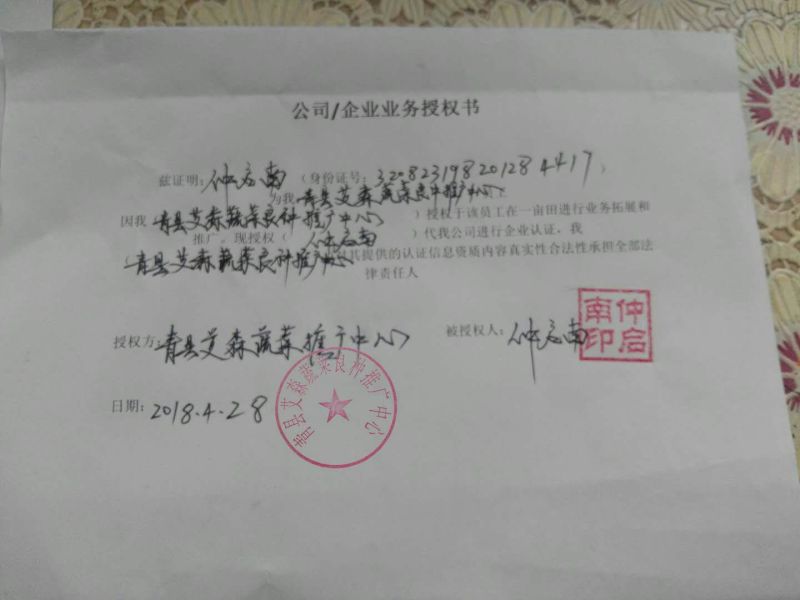 公司/企业业务授权书
兹证明：仲启南（身份证号：320823198201284417，
为我青县艾森蔬菜良种推广中心
因我青县艾森蔬菜良种推广中心）授权于该员工在一亩田进行业务拓展和
推广。现授权（仲启南）代我公司进行企业认证，我
青县艾森蔬菜良种推广中心对其提供的认证信息资质内容真实性合法性承担全部法
律责任人
授权方：青县艾森蔬菜推广中心 被授权人：仲启南
仲启南印
日期：2018.4.28
青县艾森蔬菜良种推广中心